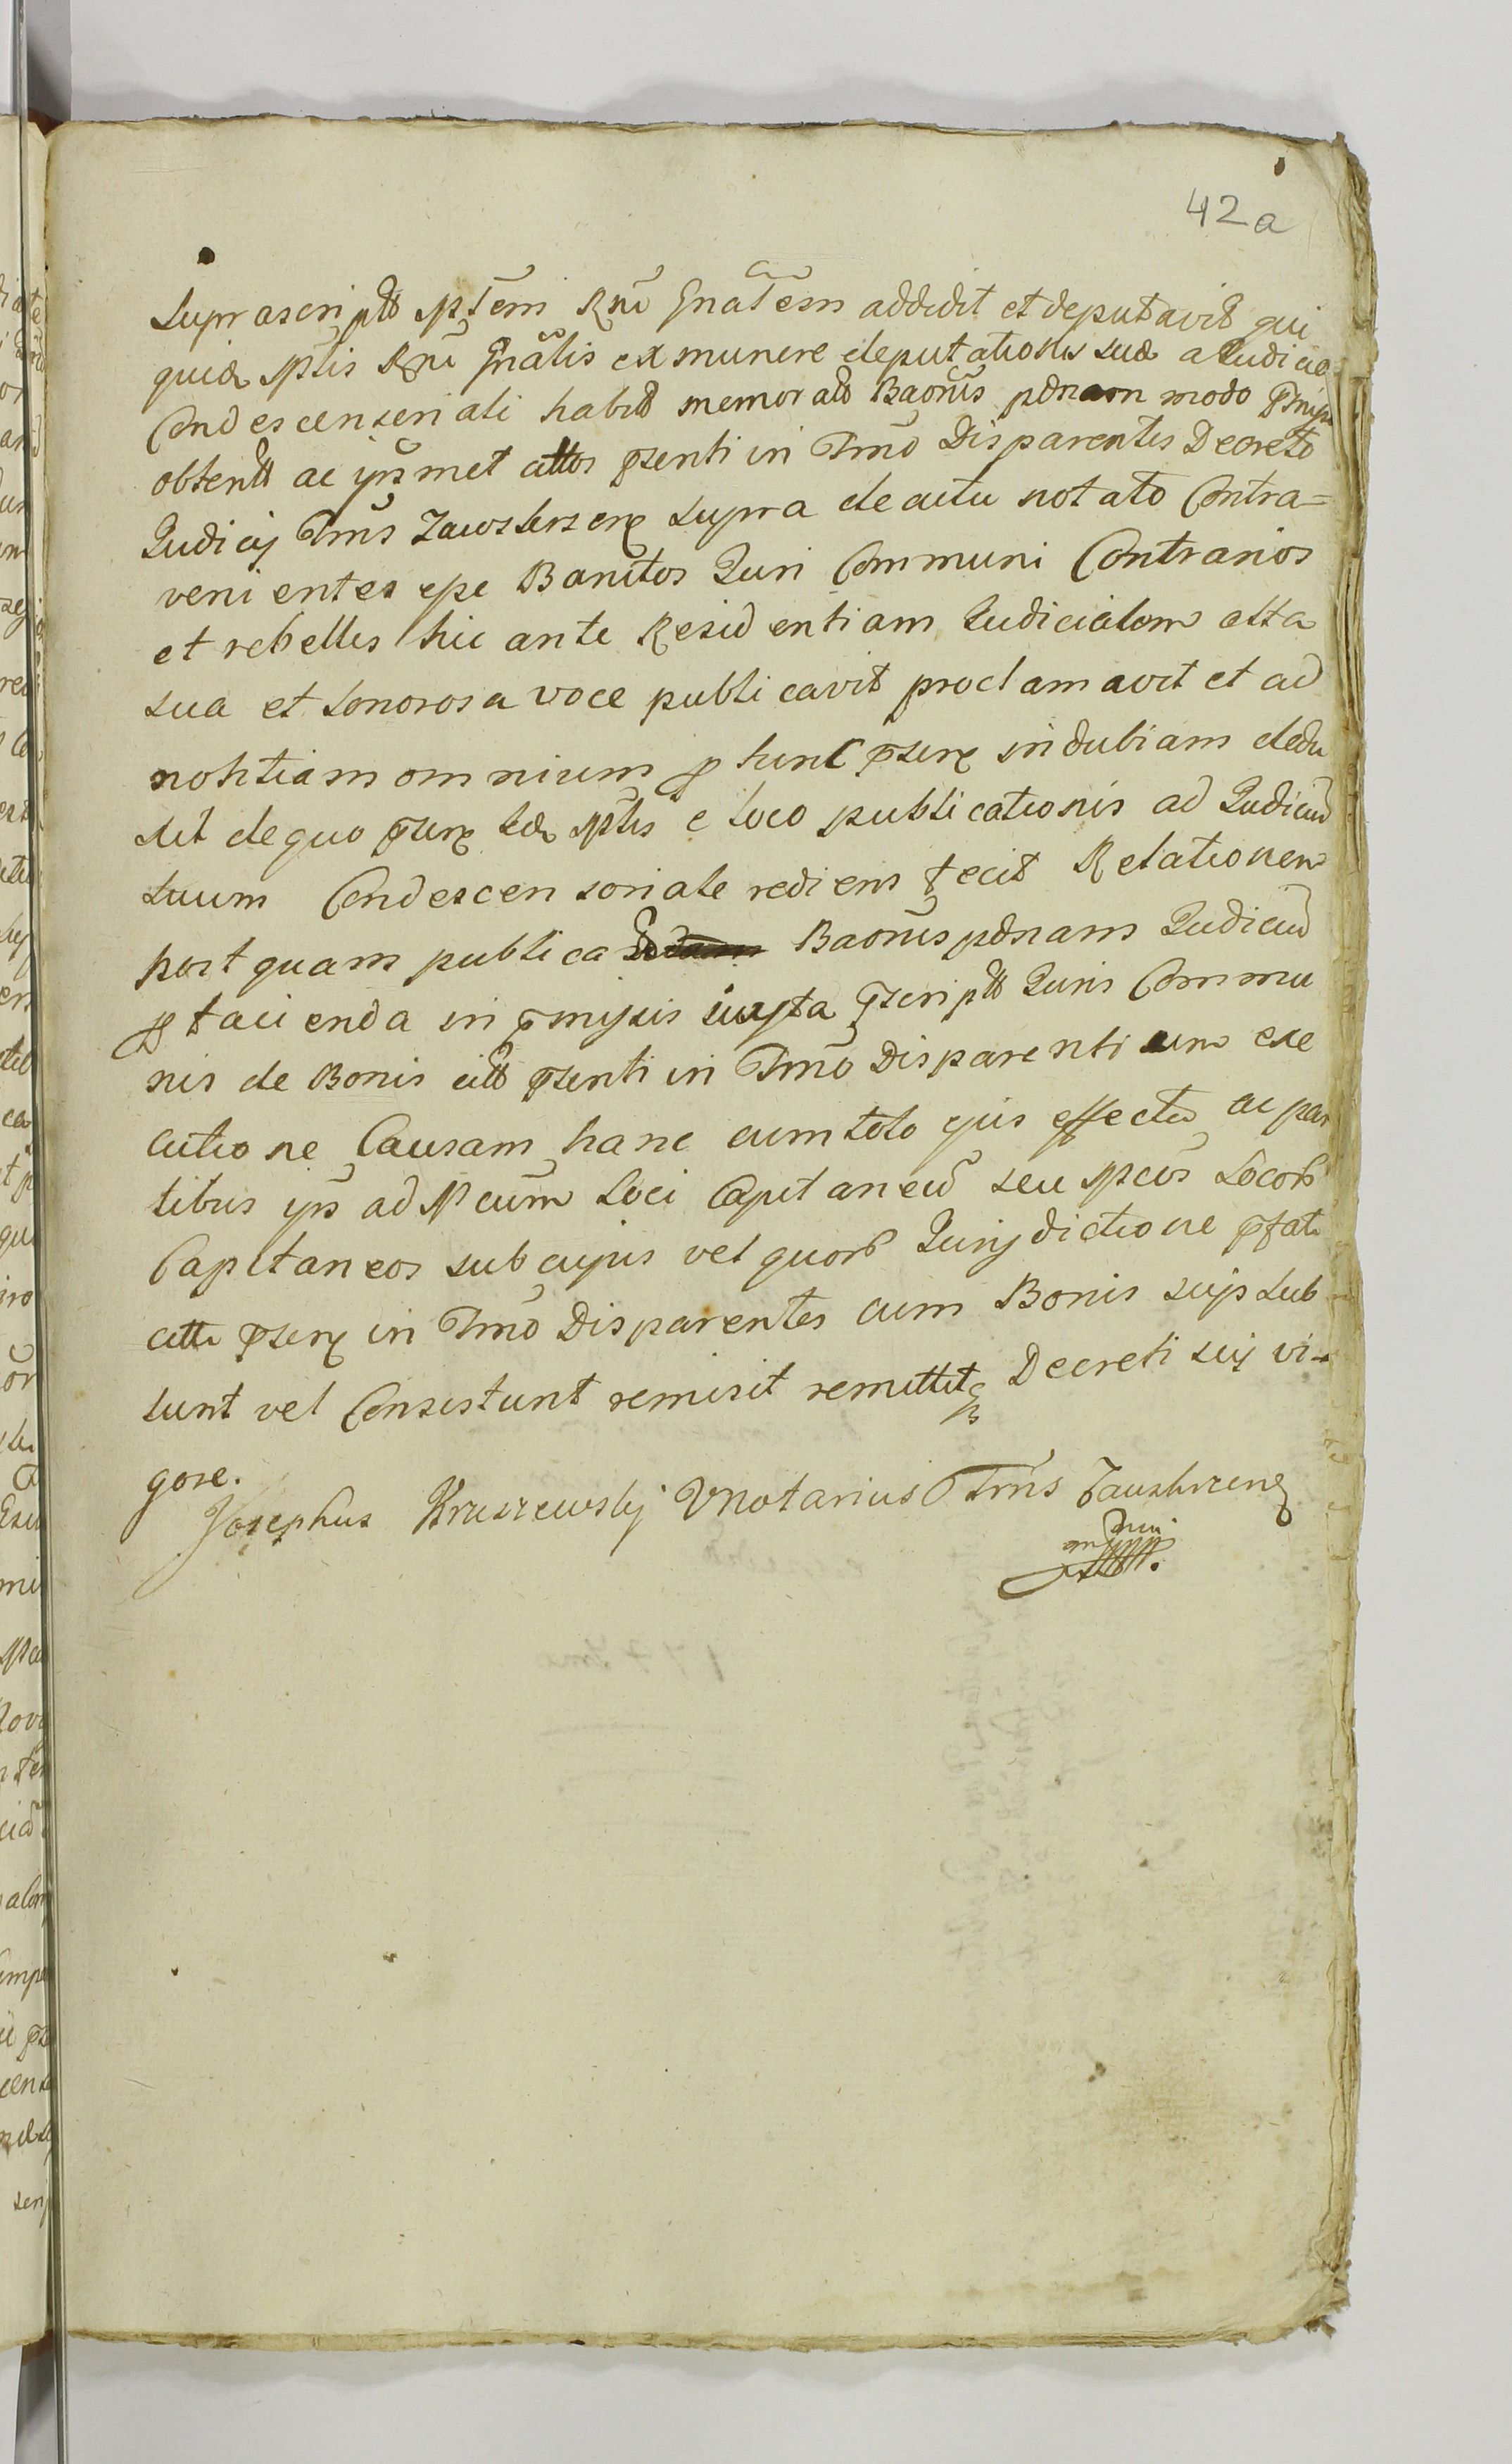 42a
Suprascriptt Mstem Rni Gnalem addidit et deputavit qui
quidē Mstlis Rni Gnalis ex munere deputationis suæ a Judicio
Condescensoriali habitt memoratt Baonis pœnam modo pmisso
obtentt ac ipsmet citto pzenti in Tmo Disparentes Decreto
Judicij Tmis Zawskrzen supra de actu notato Contra=
venientes epe Banitos Juri Communi Contrarios
et rebelles hic ante Residentiam Judicialem alta
sua et sonorosa voce publicavit proclamavit et ad
notitiam omnium p hunc pzen indubiam dedu
xit de quo pzen idē Mstlis e loco publicationis ad Judiciu
suum Condescensoriale rediens fecit Relationem
post quam publicatt Baonis pœnam Judiciu
p facienda in pmissis iuxta pzcriptt Juris Commu
nis de Bonis citt pzenti in Tmo Disparentium exe
cutione Causam hanc cum toto ejus effectu ac par
tibus ips ad Mcum Loci Capitaneu seu Mcos Locor
Capitaneos sub cujus vel quor Jurisdictione pfati
citti pzen in Tmo Disparentes cum Bonis suis sub
sunt vel Consistunt remisit remittitq Decreti sui vi-
gore.
Josephus Kruszewskj VNotarius Tmis Zauskrzen
mppa